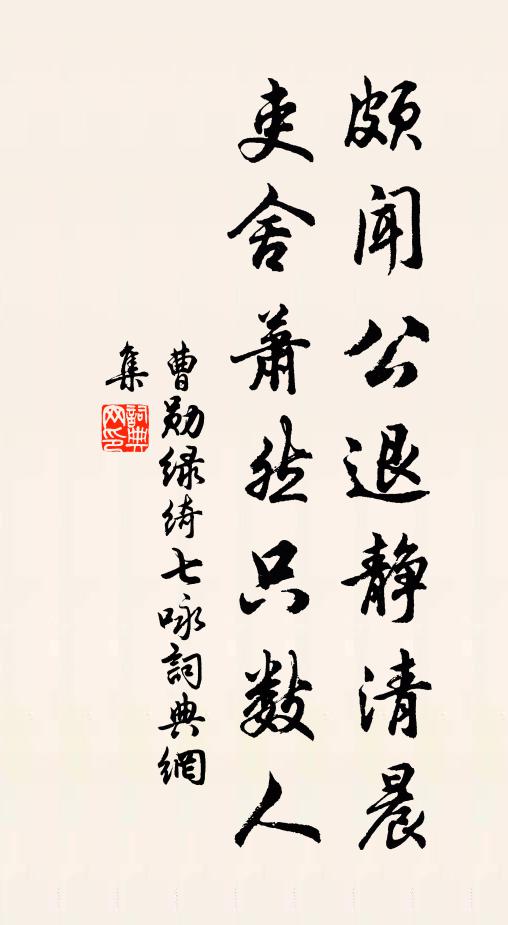 頗闻公退静清晨
吏舍蕭然只数人
曹勋绿绮七咏詞典網
集
詞典网印